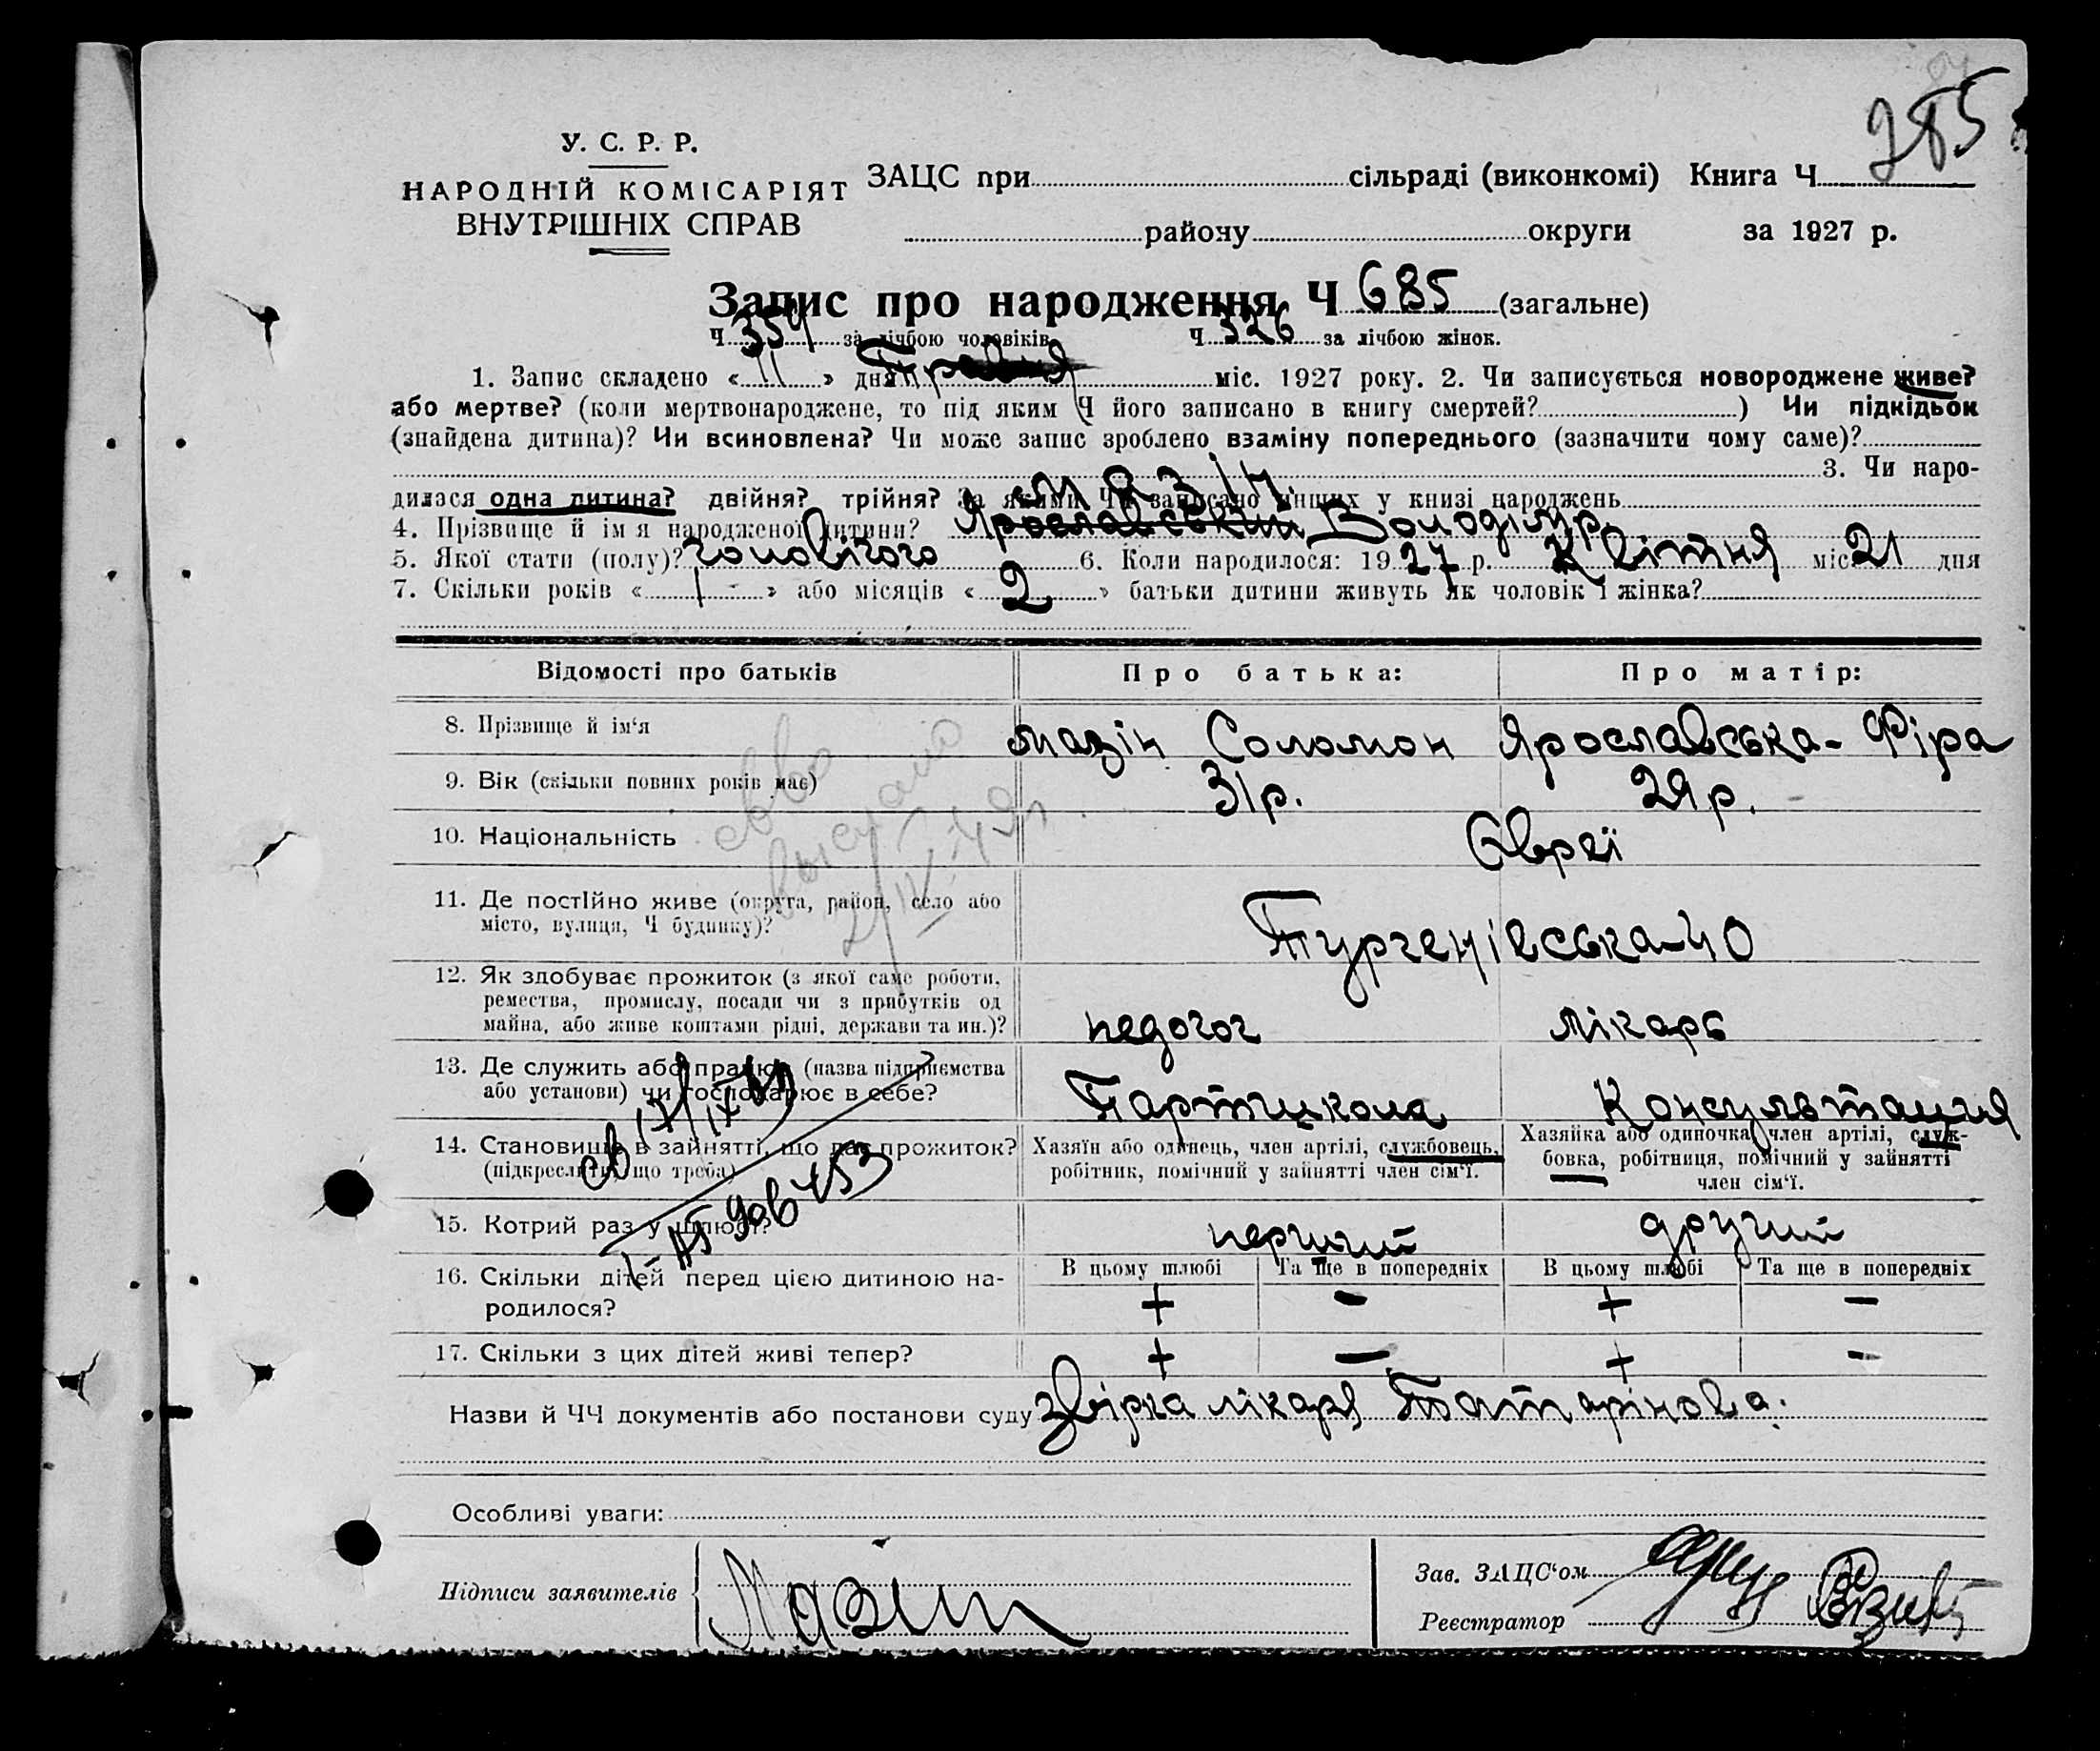 285
У. С. Р. Р.
НАРОДНІЙ КОМІСАРІЯТ
ВНУТРІШНІХ СПРАВ
ЗАЦС при сільраді (виконкомі) Книга Ч
району округи за 1927 р.
Запис про народження Ч 685 (загальне)
Ч 359 за лічбою чоловіків Ч 326 за лічбою жінок.
1. Запис складено « 11 » дня Травня міс. 1927 року. 2. Чи записується новороджене живе?
або мертве? (коли мертвонароджене, то під яким Ч його записано в книгу смертей? ) Чи підкідьок
(знайдена дитина)? Чи всиновлена? Чи може запис зроблено взаміну попереднього (зазначити чому саме)?
3. Чи наро-
дилася одна дитина? двійня? трійня? За якими ЧЧ записано інших у книзі народжень
4. Прізвище й ім я народженої дитини? Ярославський Володімір
5. Якої стати (полу)? чоловічого 6. Коли народилося: 1927 р. Квітня міс 21 дня
7. Скільки років « 1 - » або місяців « 2 » батьки дитини живуть як чоловік і жінка?
Відомості про батьків Про батька: Про матір:
8. Прізвище й ім‘я Мазін Соломон Ярославська - Фіра
9. Вік (скільки повних років має) 31 р. 29 р.
10. Національність Євреї
11. Де постійно живе (округа, район, село або
місто, вулиця, Ч будинку)? Тургенівська-40
12. Як здобуває прожиток (з якої саме роботи,
ремества, промислу, посади чи з прибутків од
майна, або живе коштами рідні, держави та ин.)? педогог лікарь
13. Де служить або працює (назва підприємства
або установи) чи господарює в себе? Партшкола Консультация
14. Становище в зайнятті, що дає прожиток?
(підкреслити, що треба)
Хазяїн або одинець, член артілі, службовець,
робітник, помічний у зайнятті член сім‘ї.
Хазяйка або одиночка, член артілі, служ-
бовка, робітниця, помічний у зайнятті
член сім‘ї.
15. Котрий раз у шлюбі? перший другий
16. Скільки дітей перед цією дитиною на-
родилося?
В цьому шлюбі Та ще в попередніх В цьому шлюбі Та ще в попередніх
+ - + -
17. Скільки з цих дітей живі тепер? + - + -
Назви й ЧЧ документів або постанови суду звірка лікаря Татарінова.
Особливі уваги:
Підписи заявителів Мазін
Зав. ЗАЦС‘ом
Реєстратор